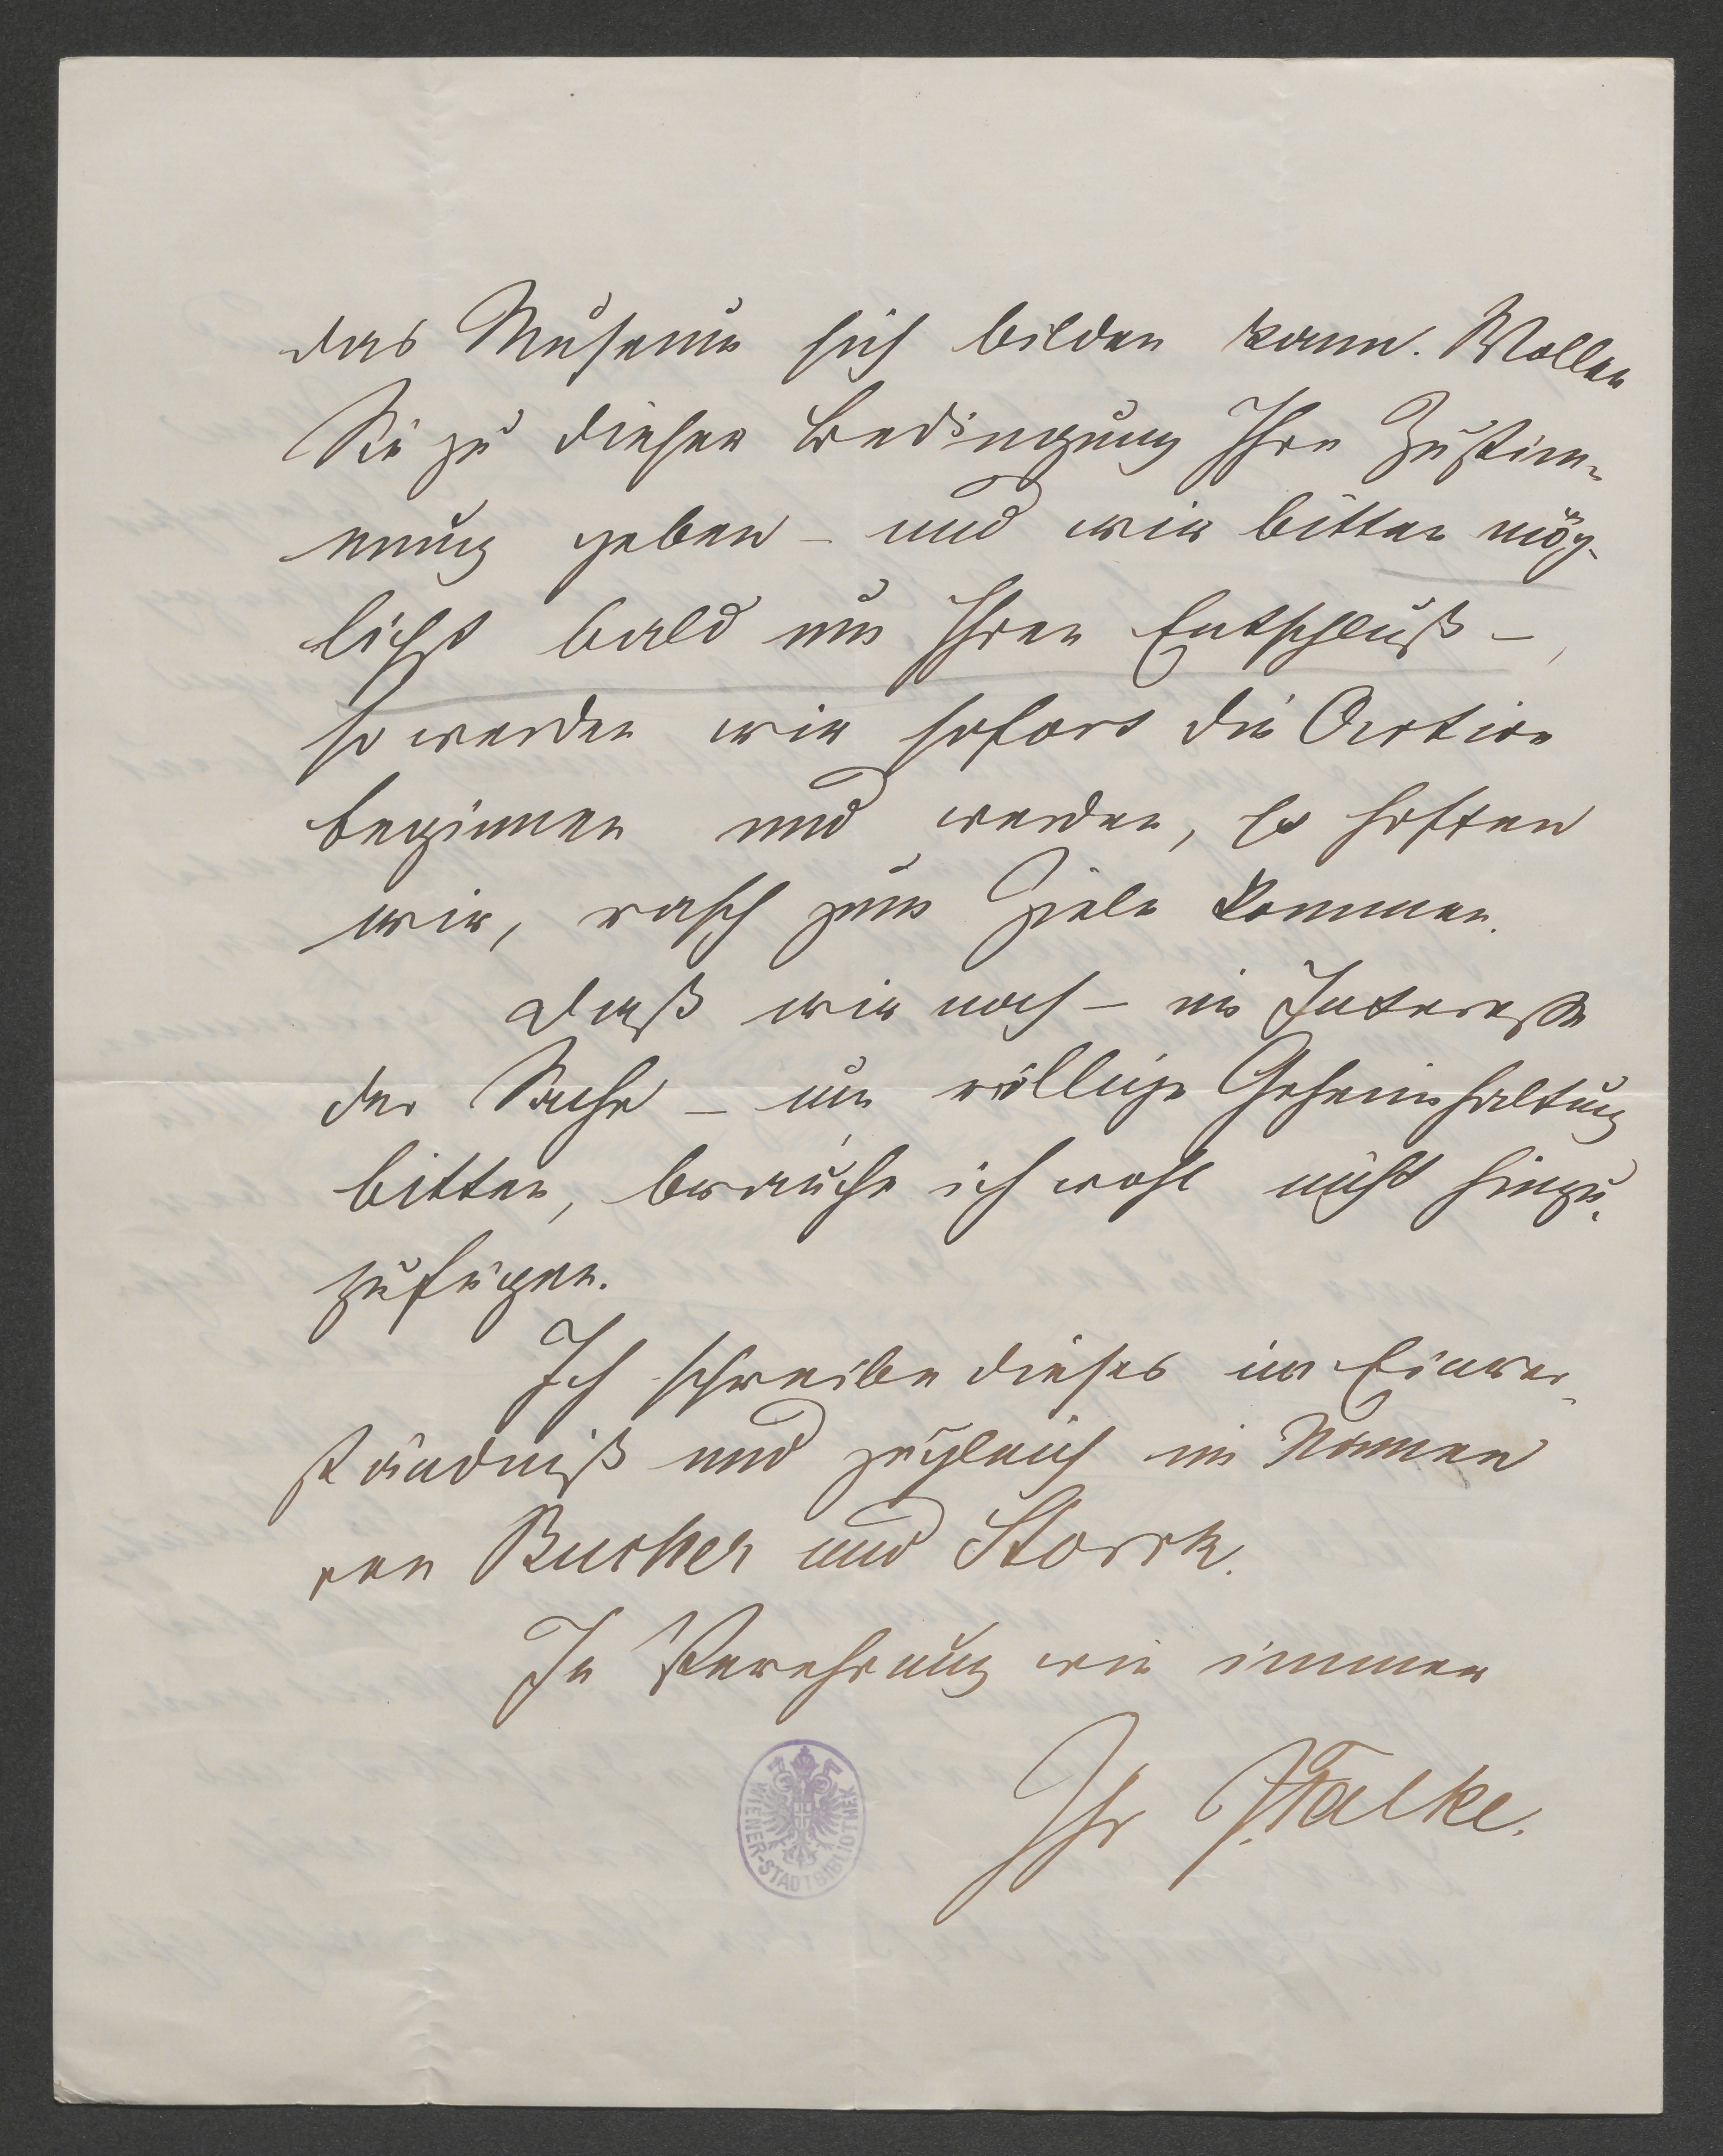 das Museum sich bilden kann. Wollen
Sie zu dieser Bedingung Ihre Zustim-
mung geben – und wir bitten mög-
lichst bald um Ihren Entschluß –,
so werden wir sofort die Action
beginnen und werden, so hoffen
wir, rasch zum Ziele kommen.
Daß wir noch – im Interesse
der Sache – um völlige Geheimhaltung
bitten, brauche ich wohl nicht hinzu-
zufügen.
Ich schreibe dieses im Einver-
ständniß und zugleich im Namen
von Bucher und Storck.
In Verehrung wie immer
Ihr J. Falke.
WIENER-STADTBIBLIOTHEK